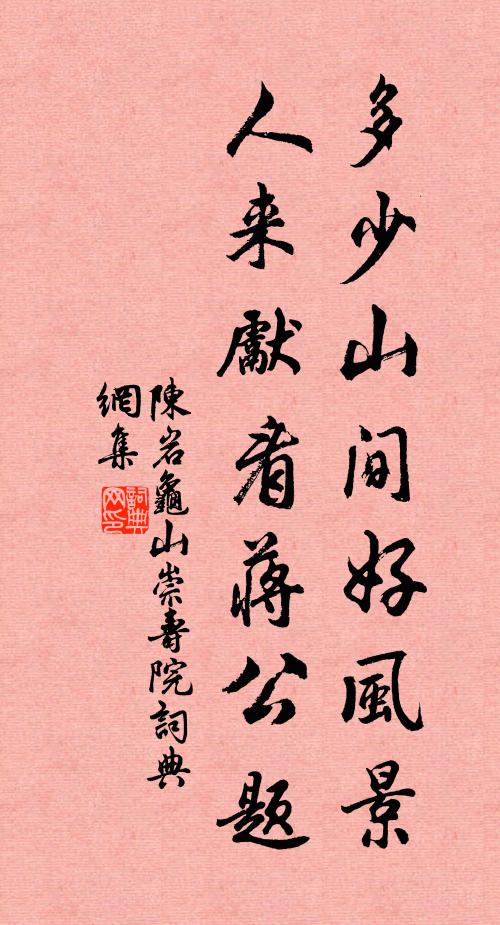 多少山間好風景
人来獻看蔣公題
陳岩龜山崇壽院詞典
網集
詞典网印